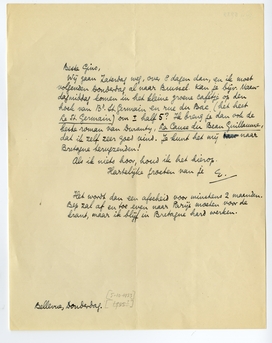 Beste Gino,
Wij gaan Zaterdag weg, over 2 dagen dan, en ik moet
volgenden Donderdag al naar Brussel. Kan je bijv. Maan-
dagmiddag komen in het kleine groene cafeetje op den
hoek van Bd St. Germain en rue du Bac (het heet
Le St. Germain) om ± half 5? Ik breng je dan ook de
beste roman van Duranty, La Cause du Beau Guillaume,
dat ik zelf zeer goed vind. Je kunt het mij naar
Bretagne terugzenden!
Als ik niets hoor, houd ik het hierop.
Hartelijke groeten van je
E.
Het wordt dan een afscheid voor minstens 2 maanden.
Bep zal af en toe even naar Parijs moeten voor de
krant, maar ik blijf in Bretagne hard werken.
Bellevue, Donderdag.